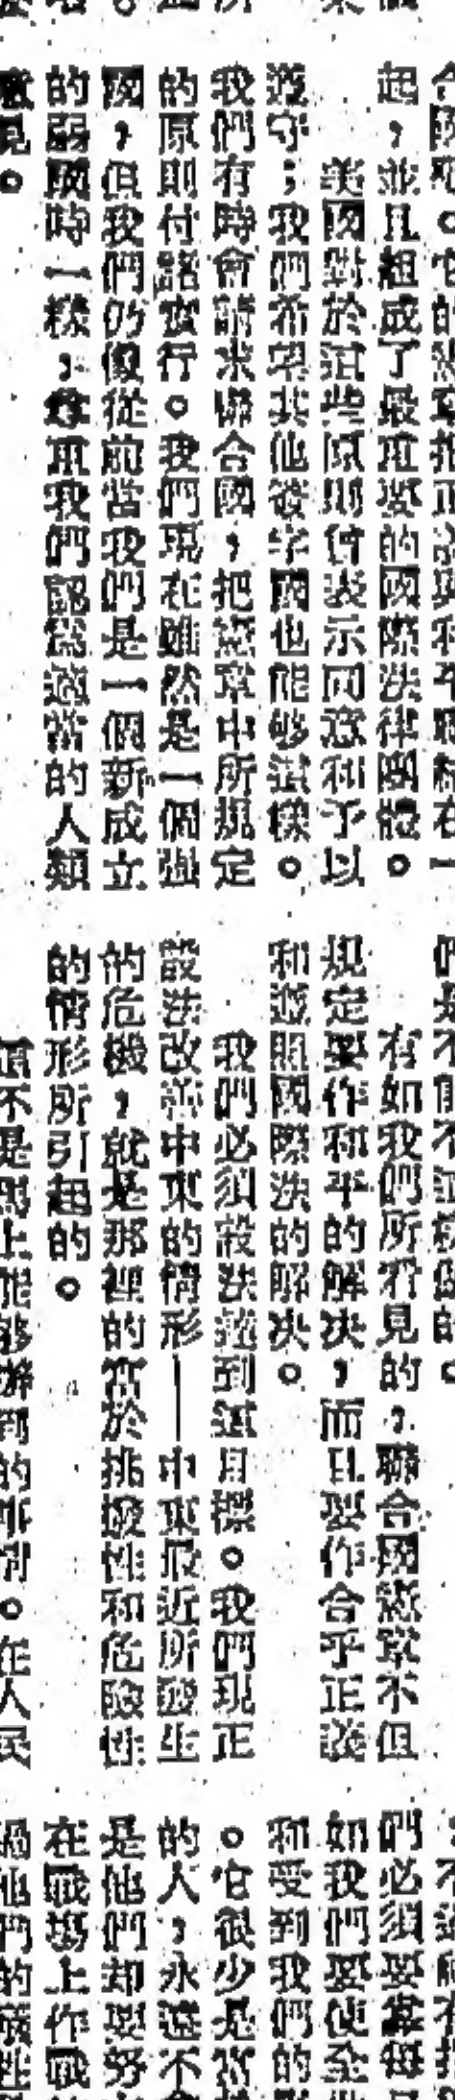 起，並且組成了最重要的國際法律團體。
美國對於這些原則曾表示同意和予以
遵守；我們希望其他簽字國也能够這樣。
我們有時會請求聯合國，把憲章中所規定
的原則付諸實行。我們現在雖然是一個強
國，但我們仍像從前當我們是一個新成立
的弱國時一樣，尊重我們認為適當的人類
意見。
有如我們所看見的，聯合國憲章不但
規定要作和平的解決，而且要作合乎正義
和遵照國際法的解決。
我們必須設法達到這目標。我們現正
設法改善中東的情形——中東最近所發生
的危機，就是那裡的富於挑撥性和危險性
的情形所引起的。
這不是馬上能够辦到的事情。在人民
們必須要靠每
如我們要使全
和受到我們的
。它很少是當
的人，永遠不會
是他們却要努
在戰場上作戰
過他們的犧牲